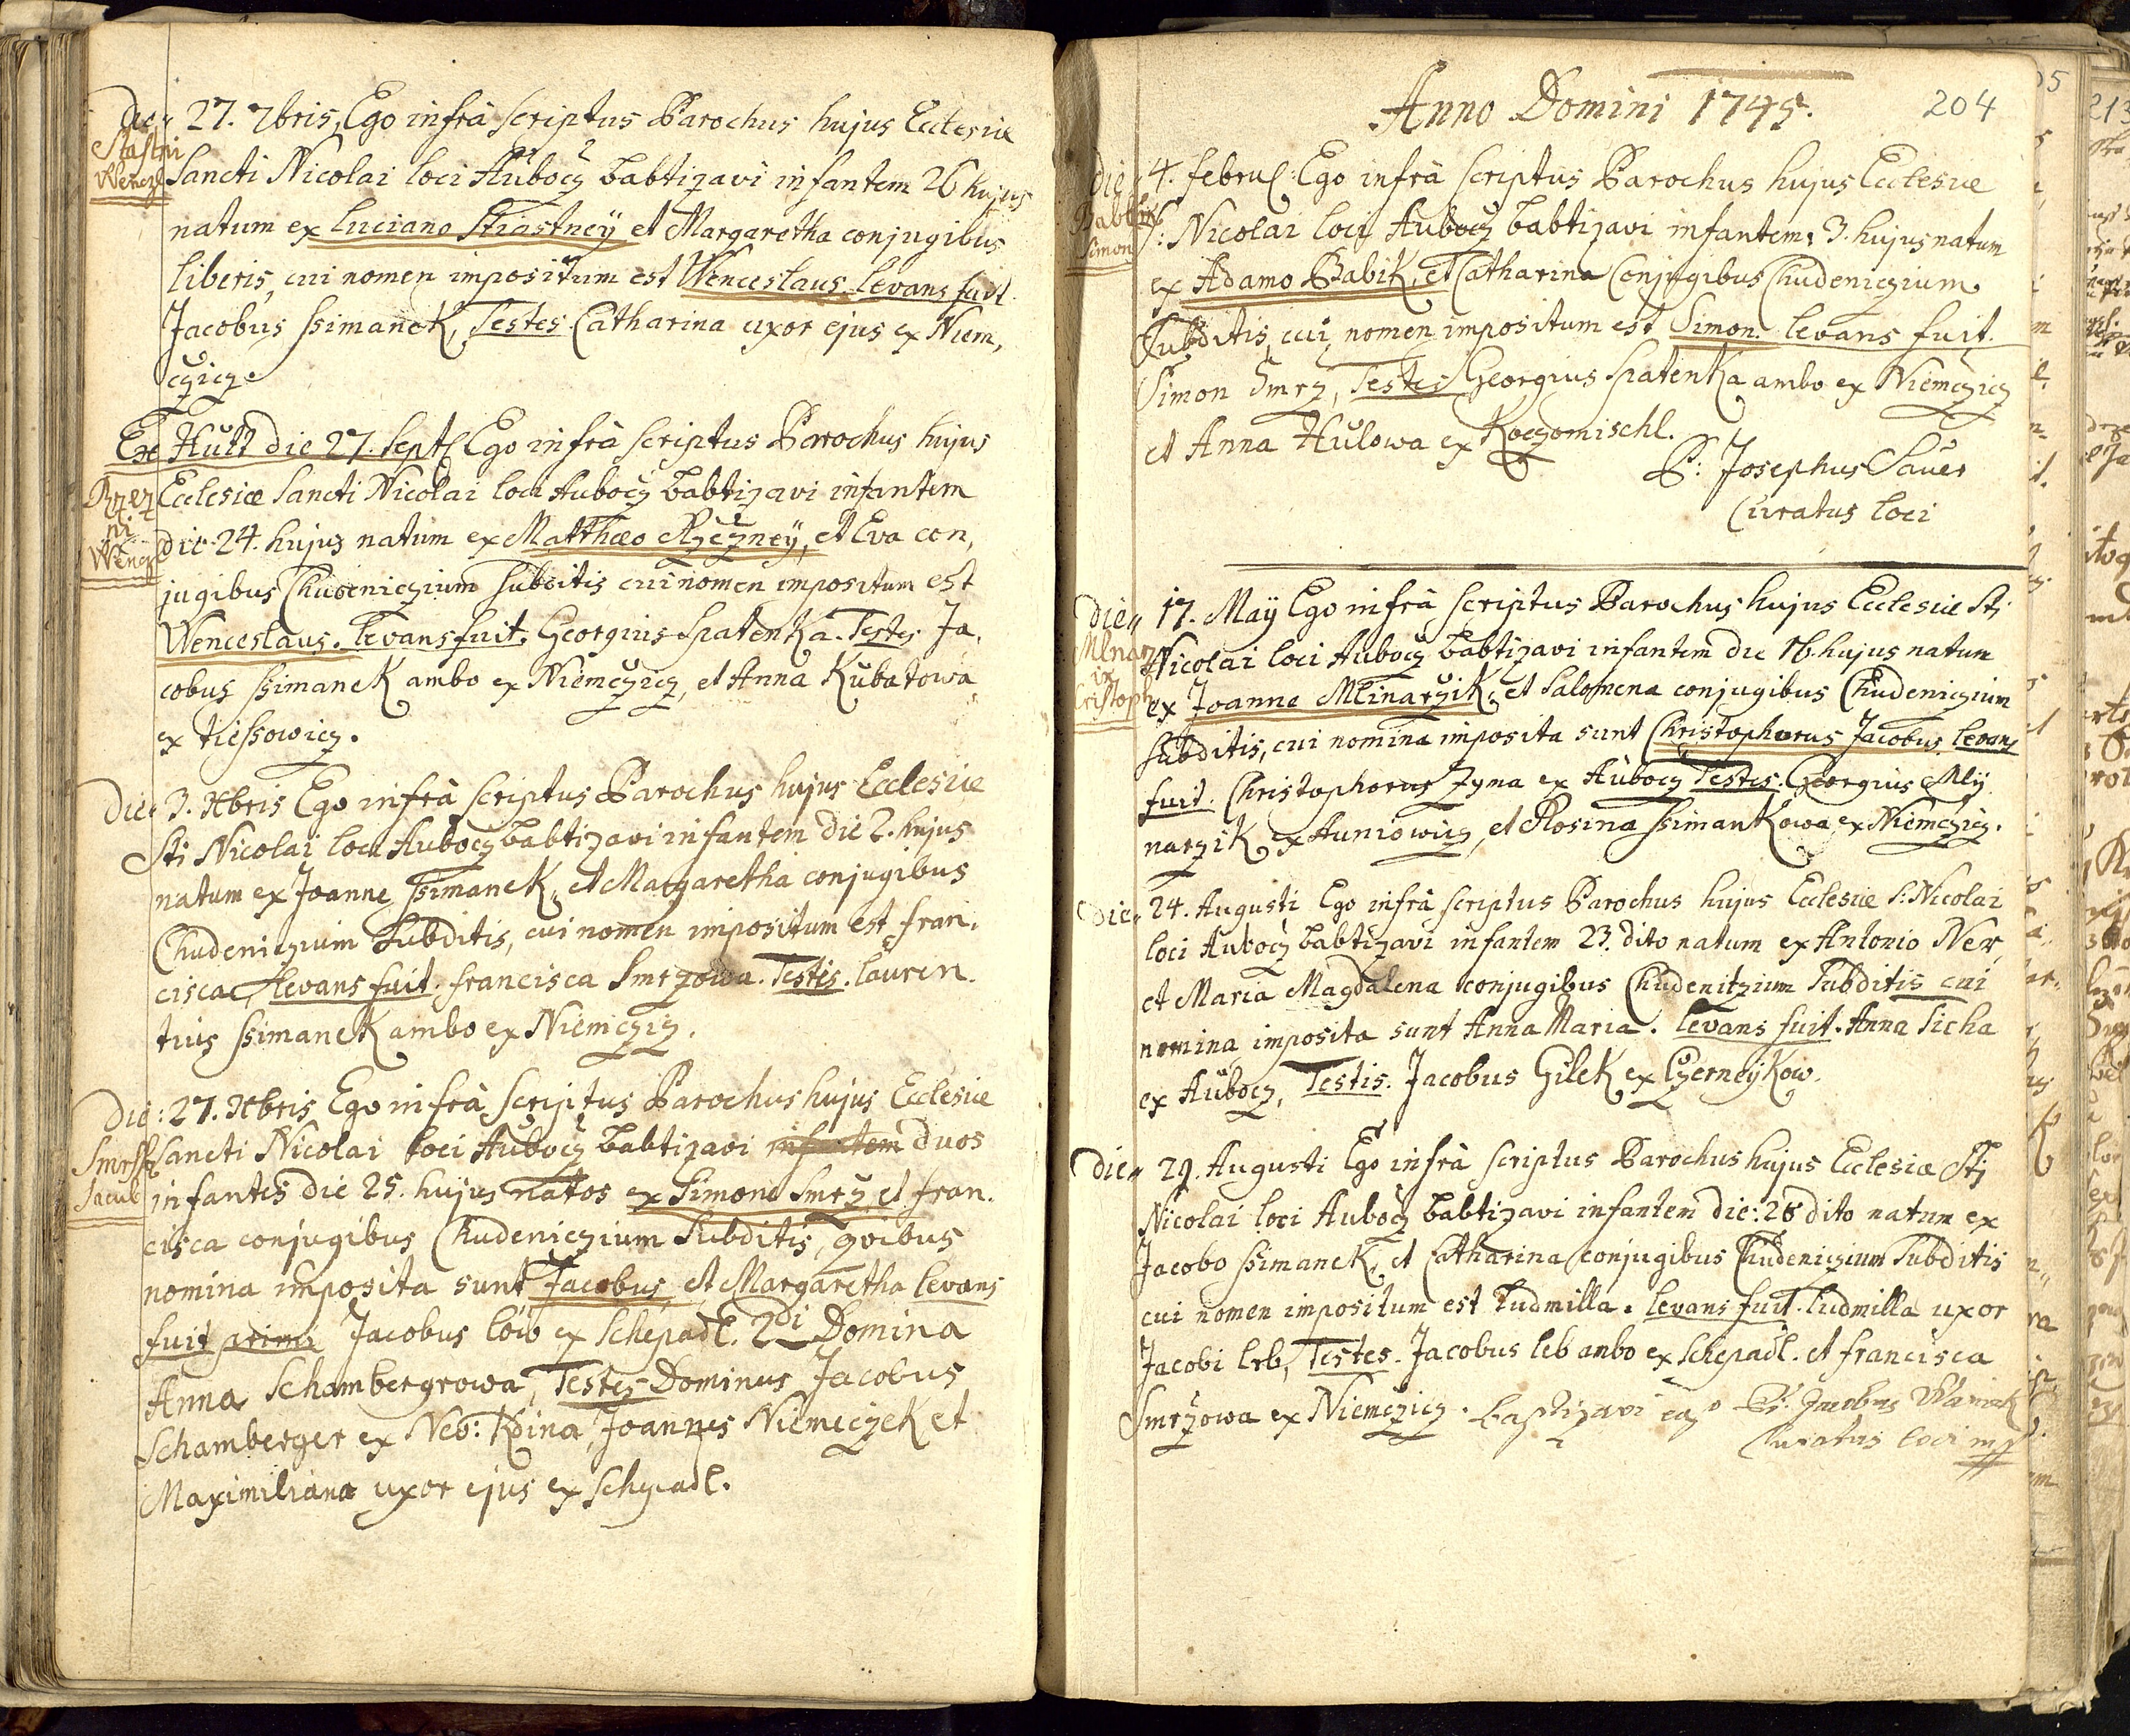 die 27. 7bris, Ego infrà scriptus Parochus hujus Ecclesiæ
Stastni
Wenczl
Sancti Nicolai loci Aŭbocz babtizavi infantem 26 hujus
natum ex Luciano Stiastneÿ et Margaretha conjugibus
liberis, cui nomen impositum est Wenceslaus levans fuit
Jacobus Ssimanek, Testes Catharina uxor ejus ex Niem,
czicz.
Ex Hŭtt die 27. Sept Ego infrà scriptus Parochus hujus
Rzez
ni
Wencz
Ecclesiæ Sancti Nicolai loci Aubocz babtizavi infantem
die 24. hujus natum ex Matthæo Rzezneÿ, et Eva con,
jugibus Chudeniczium Subditis cui nomen impositum est
Wenceslaus. levans fuit. Georgius Spatenka. Testes Ja,
cobus Ssimanek ambo ex Niemczicz, et Anna Kŭbatowa
ex tiessowicz.
Die 3. Xbris Ego infrà scriptus Parochus hujus Ecclesiæ
Sti Nicolai loci Aubocz babtizavi infantem die 2. hujus
natum ex Joanne Ssimanek, et Margaretha conjugibus
Chudeniczium Subditis, cui nomen impositum est fran,
cisca, levans fuit. francisca Smrzowa. Testis. lauren
tius Ssimanek ambo ex Niemczicz.
Die: 27. Xbris Ego infrà Scriptus Parochus hujus Ecclesiæ
Jacub
Sancti Nicolai loci Aŭbocz babtizavi infantem duos
infantes die 25. hujus natos ex Simone Smrz et fran.
cisca conjugibus Chudeniczium Subditis, qvibus
nomina imposita sunt Jacobus et Margaretha levans
fuit primi Jacobus löw ex Schepadl. 2di Domina
Anna Schambergrowa, Testes Dominus Jacobus
Schamberger ex Neb: Koina, Joannes Niemeczek et
Maximiliana uxor ejus ex Schepadl.
Anno Domini 1745.
204
die 4. febru: Ego infrà scriptus Parochus hujus Ecclesiæ
Simon
S: Nicolai loci Aubocz babtizavi infantem, 3. hujus natum
ex Adamo Babik, et Catharina Conjugibus Chudeniczium
Subditis, cui nomen impositum est Simon. levans fuit.
Simon Smrz, Testes Georgius Spatenka ambo ex Niemczicz
et Anna Hŭlowa ex Koczomischl.
P: Josephus Sauer
Curatus loci
die 17. Maÿ Ego infrà scriptus Parochus hujus Ecclesiæ Sti
Mlnarz
ix
Cristoph
Nicolai loci Aubocz babtizavi infantem die 16. hujus natum
ex Joanne Mlinarzik, et Salomena conjugibus Chudeniczium
Subditis, cui nomina imposita sunt Christophorus Jacobus levans
fuit. Christophorus Zyma ex Aŭbocz Testes. Georgius Mlÿ
narzik ex Auniowicz, et Rosina Ssimankowa ex Niemczicz.
Die 24. Augusti Ego infrà scriptus Parochus hujus Ecclesiæ S: Nicolai
loci Aubocz babtizavi infantem 23. dito natum ex Antonio
et Maria Magdalena conjugibus Chudenitzium Subditis cui
nomina imposita sunt Anna Maria. levans fuit. Anna Sicha
ex Aŭbocz, Testis. Jacobus Gilek ex Czerneÿkow.
Die 29. Augusti Ego infrà scriptus Parochus hujus Ecclesiæ Sti
Nicolai loci Aubocz babtizavi infantem die: 28 dito natum ex
Jacobo Ssimanek, et Catharina conjugibus Chudeniczium Subditis
cui nomen impositum est Ludmilla. levans fuit. ludmilla uxor
Jacobi leb, Testes. Jacobus leb ambo ex Schepadl. et francisca
Smrzowa ex Niemczicz. baptizavi ego Jacobus
Curatus loci mp